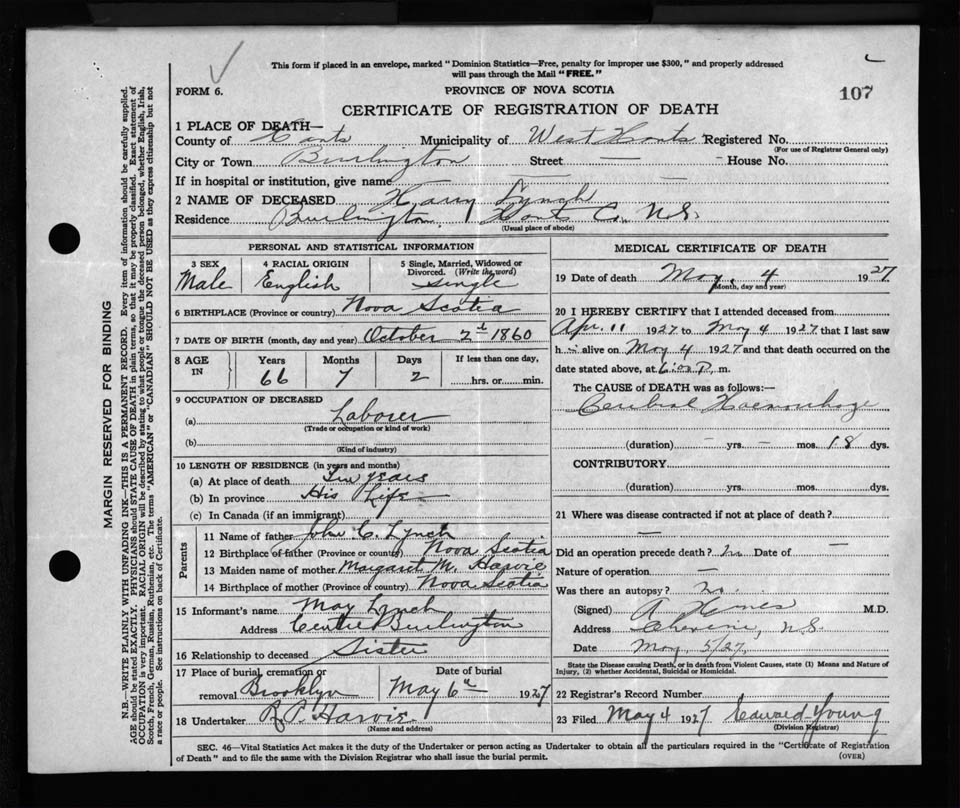 This form if placed in an envelope, marked "Dominion Statistics—Free, penalty for improper use $300," and properly addressed
will pass through the Mail "FREE."
FORM 6.
PROVINCE OF NOVA SCOTIA
107
CERTIFICATE OF REGISTRATION OF DEATH
1 PLACE OF DEATH—
County of Hants Municipality of West Hants Registered No.
(For use of Registrar General only)
City or Town Burlington Street — House No.
If in hospital or institution, give name —
2 NAME OF DECEASED Harry Lynch
Residence Burlington, Hants Co. N.S.
(Usual place of abode)
PERSONAL AND STATISTICAL INFORMATION
3 SEX
Male
4 RACIAL ORIGIN
English
5 Single, Married, Widowed or
Divorced. (Write the word)
Single
6 BIRTHPLACE (Province or country) Nova Scotia
7 DATE OF BIRTH (month, day and year) October 2d 1860
8 AGE
IN
Years
66
Months
7
Days
2
If less than one day,
hrs. or min.
9 OCCUPATION OF DECEASED
(a) Laborer
(Trade or occupation or kind of work)
(b)
(Kind of industry)
10 LENGTH OF RESIDENCE (in years and months)
(a) At place of death Ten years
(b) In province His Life
(c) In Canada (if an immigrant)
Parents
11 Name of father John C. Lynch
12 Birthplace of father (Province or country) Nova Scotia
13 Maiden name of mother Margaret M. Harvie
14 Birthplace of mother (Province or country) Nova Scotia
15 Informant's name May Lynch
Address Centre Burlington
16 Relationship to deceased Sister
17 Place of burial, cremation or
removal Brooklyn
Date of burial
May 6th 1927
18 Undertaker R. P. Harvie
(Name and address)
MEDICAL CERTIFICATE OF DEATH
19 Date of death May 4 1927
(Month, day and year)
20 I HEREBY CERTIFY that I attended deceased from
Apr. 11 1927 to May 4 1927 that I last saw
h alive on May 4 1927 and that death occurred on the
date stated above, at 6:00 P. m.
The CAUSE of DEATH was as follows:—
Cerebral Haemorrhage
(duration) — yrs. — mos. 18 dys.
CONTRIBUTORY
(duration) yrs. mos. dys.
21 Where was disease contracted if not at place of death?
—
Did an operation precede death? no Date of —
Nature of operation —
Was there an autopsy? no.
(Signed) M.D.
Address N.S.
Date May 5/27.
State the Disease causing Death, or in death from Violent Causes, state (1) Means and Nature of
Injury, (2) whether Accidental, Suicidal or Homicidal.
22 Registrar's Record Number
23 Filed May 4 1927 Edward Young
(Division Registrar)
SEC. 46—Vital Statistics Act makes it the duty of the Undertaker or person acting as Undertaker to obtain all the particulars required in the "Certificate of Registration
of Death" and to file the same with the Division Registrar who shall issue the burial permit.
(OVER)
MARGIN RESERVED FOR BINDING
N.B.—WRITE PLAINLY WITH UNFADING INK—THIS IS A PERMANENT RECORD. Every item of information should be carefully supplied.
AGE should be stated EXACTLY. PHYSICIANS should STATE CAUSE OF DEATH in plain terms, so that it may be properly classified. Exact statement of
OCCUPATION is very important. RACIAL ORIGIN will be described by stating to what people or tongue the deceased person belonged, whether English, Irish,
Scotch, French, German, Russian, Ruthenian, etc. The terms "AMERICAN" or "CANADIAN" SHOULD NOT BE USED as they express citizenship but not
a race or people. See instructions on back of Certificate.